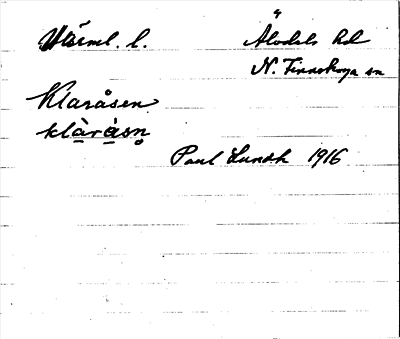 Värml. l. Älvdals hd
N. Finnskoga sn
Klaråsen
klàråsn
Paul Lundh 1916